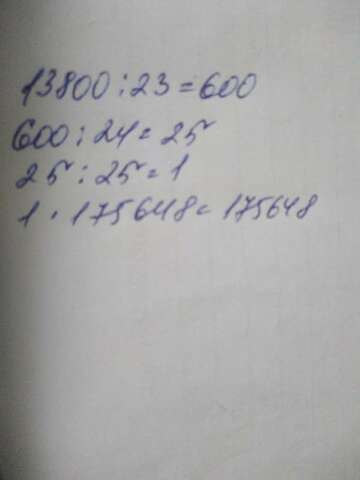 13800:23=600
600:24=25
25:25=1
1·175648=175648